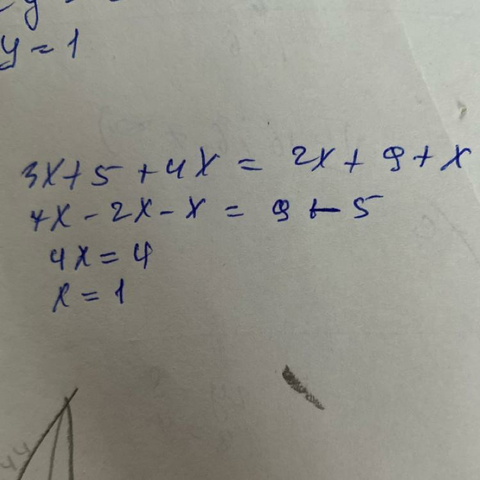 y = 1
3x + 5 + 4x = 2x + 9 + x
7x - 2x - x = 9 - 5
4x = 4
x = 1
44